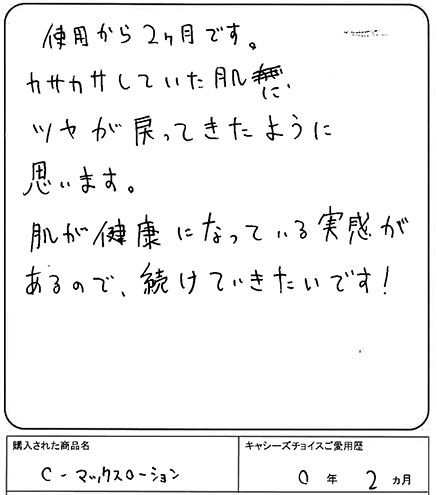 使用から2ヶ月です。
カサカサしていた肌に、
ツヤが戻ってきたように
思います。
肌が健康になっている実感が
あるので、続けていきたいです!
購入された商品名
キャシーズチョイスご愛用歴
C-マックスローション
0年2ヵ月